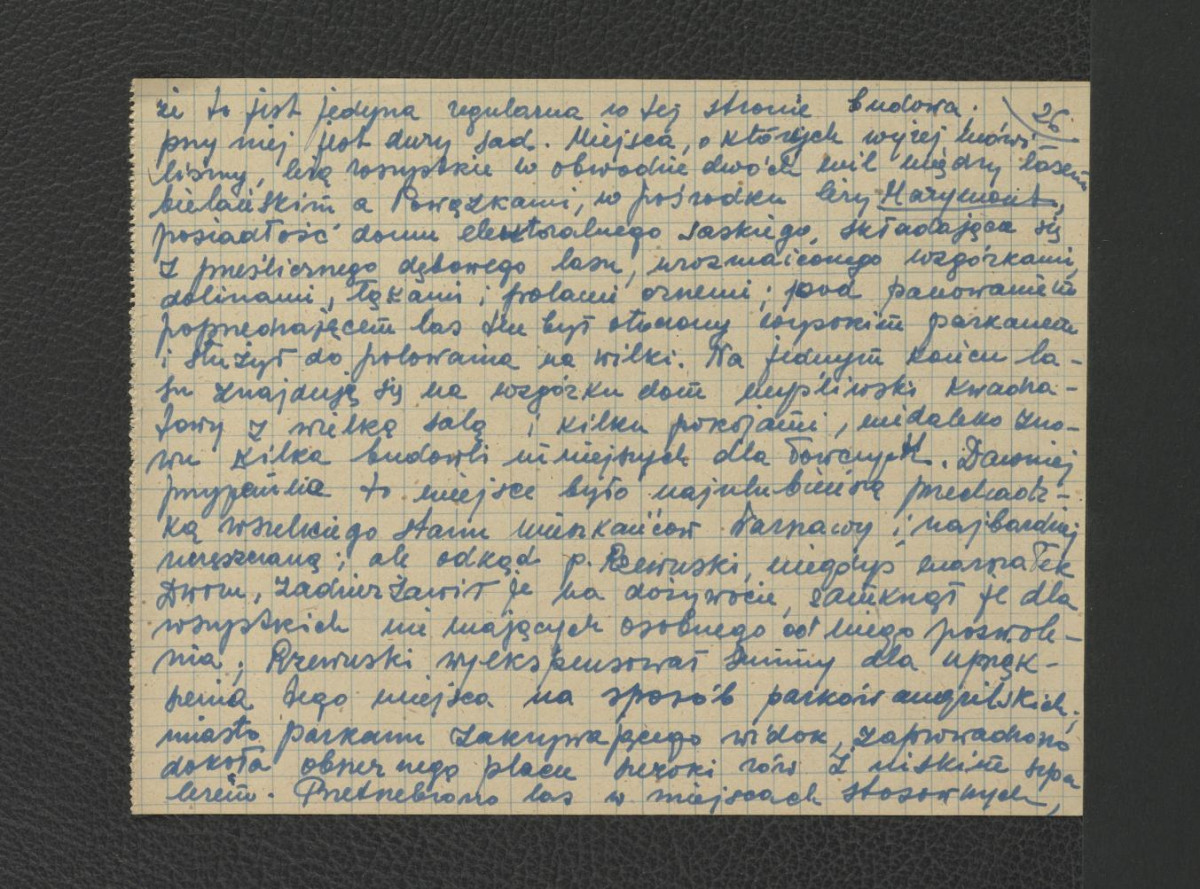 że to jest jedyna regularna w tej stronie budowa. 26
przy niej jest duży sad. Miejsca, o których wyżej mówi-
liśmy, leżą wszystkie w obwodzie dwóch mil między lasem
bielańskim a Powązkami, w pośrodku leży Marymont,
posiadłość domu elektoralnego saskiego, składająca się
z prześlicznego dębowego lasu, urozmaiconego wzgórkami,
dolinami, łąkami i polami ornemi; pod panowaniem
poprzedzającem las ten był otoczony wysokim parkanem
i służył do polowania na wilki. Na jednym końcu la-
su znajduję się na wzgórku dom myśliwski kwadra-
towy z wielką salą i kilku pokojami, niedaleko zno-
wu kilka budowli mniejszych dla łowczych. Dawniej
przypomina to miejsce było najulubieńszą przechadz-
ką wszelkiego stanu mieszkańców Warszawy i najbardziej
uczęszczaną; ale odkąd p. Rzewuski, niegdyś marszałek
Dworu, zadzierżawił je na dożywocie, zamknął je dla
wszystkich nie mających osobnego od niego pozwole-
nia; Rzewuski wyekspensował summy dla upięk-
szenia tego miejsca na sposób parków angielskich;
miasto parkanu zakrywającego widok, zaprowadzono
dokoła obszernego placu szeroki rów z niskim szpa
lerem. Przetrzebiono las w miejscach stosownych,